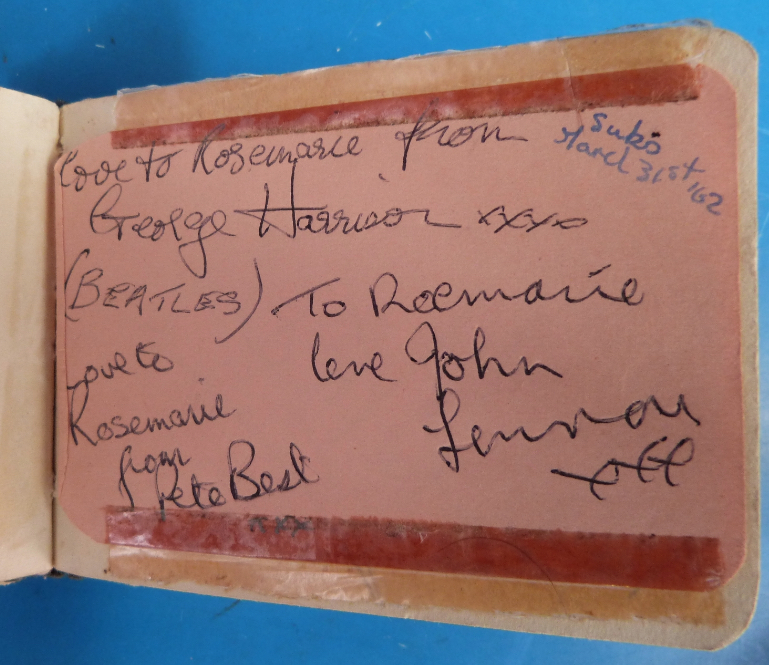 love to Rosemarie from
Subs
March 31st '62
George Harrison xxxx
(BEATLES)
To Roemarie
love John
Lennon
Love to
Rosemarie
from
Pete Best
xxx